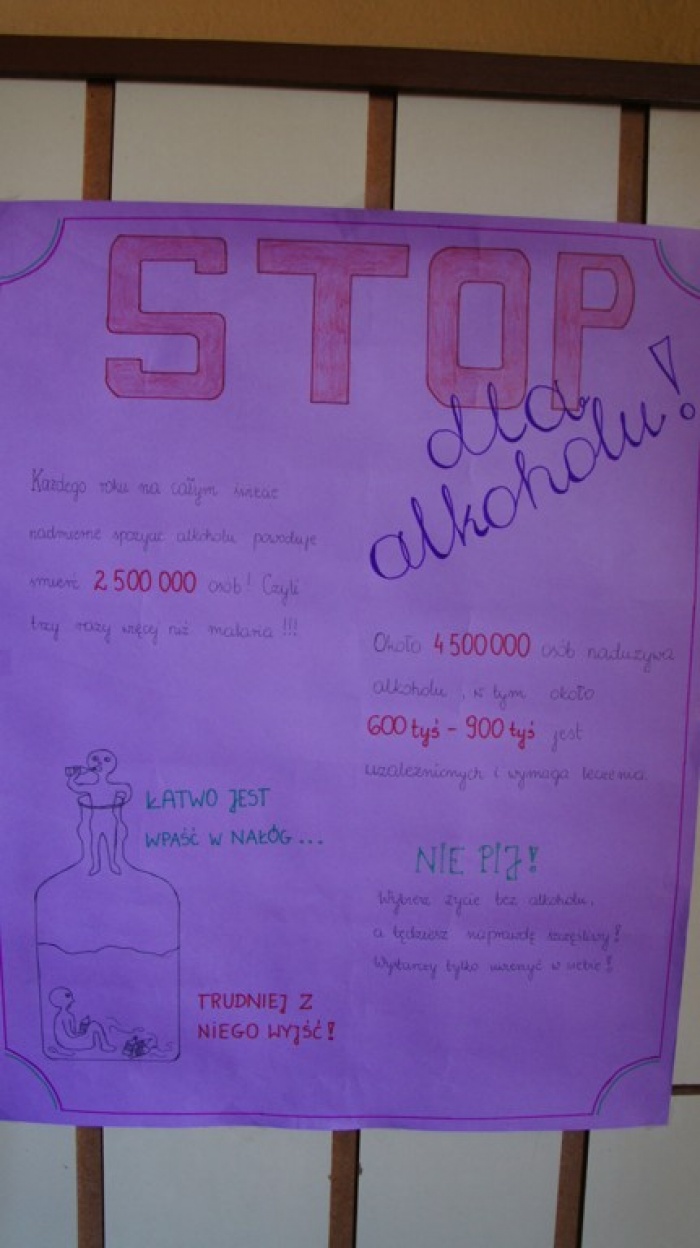 STOP
dla
alkoholu!
Każdego roku na całym świecie
nadmierne spożycie alkoholu powoduje
śmierć 2 500 000 osób! Czyli
trzy razy więcej niż malaria !!!
Około 4 500 000 osób nadużywa
alkoholu, w tym około
600 tyś - 900 tyś jest
uzależnionych i wymaga leczenia.
ŁATWO JEST
WPAŚĆ W NAŁÓG...
NIE PIJ!
Wybierz życie bez alkoholu,
a będziesz naprawdę szczęśliwy!
Wystarczy tylko uwierzyć w siebie!
TRUDNIEJ Z
NIEGO WYJŚĆ!